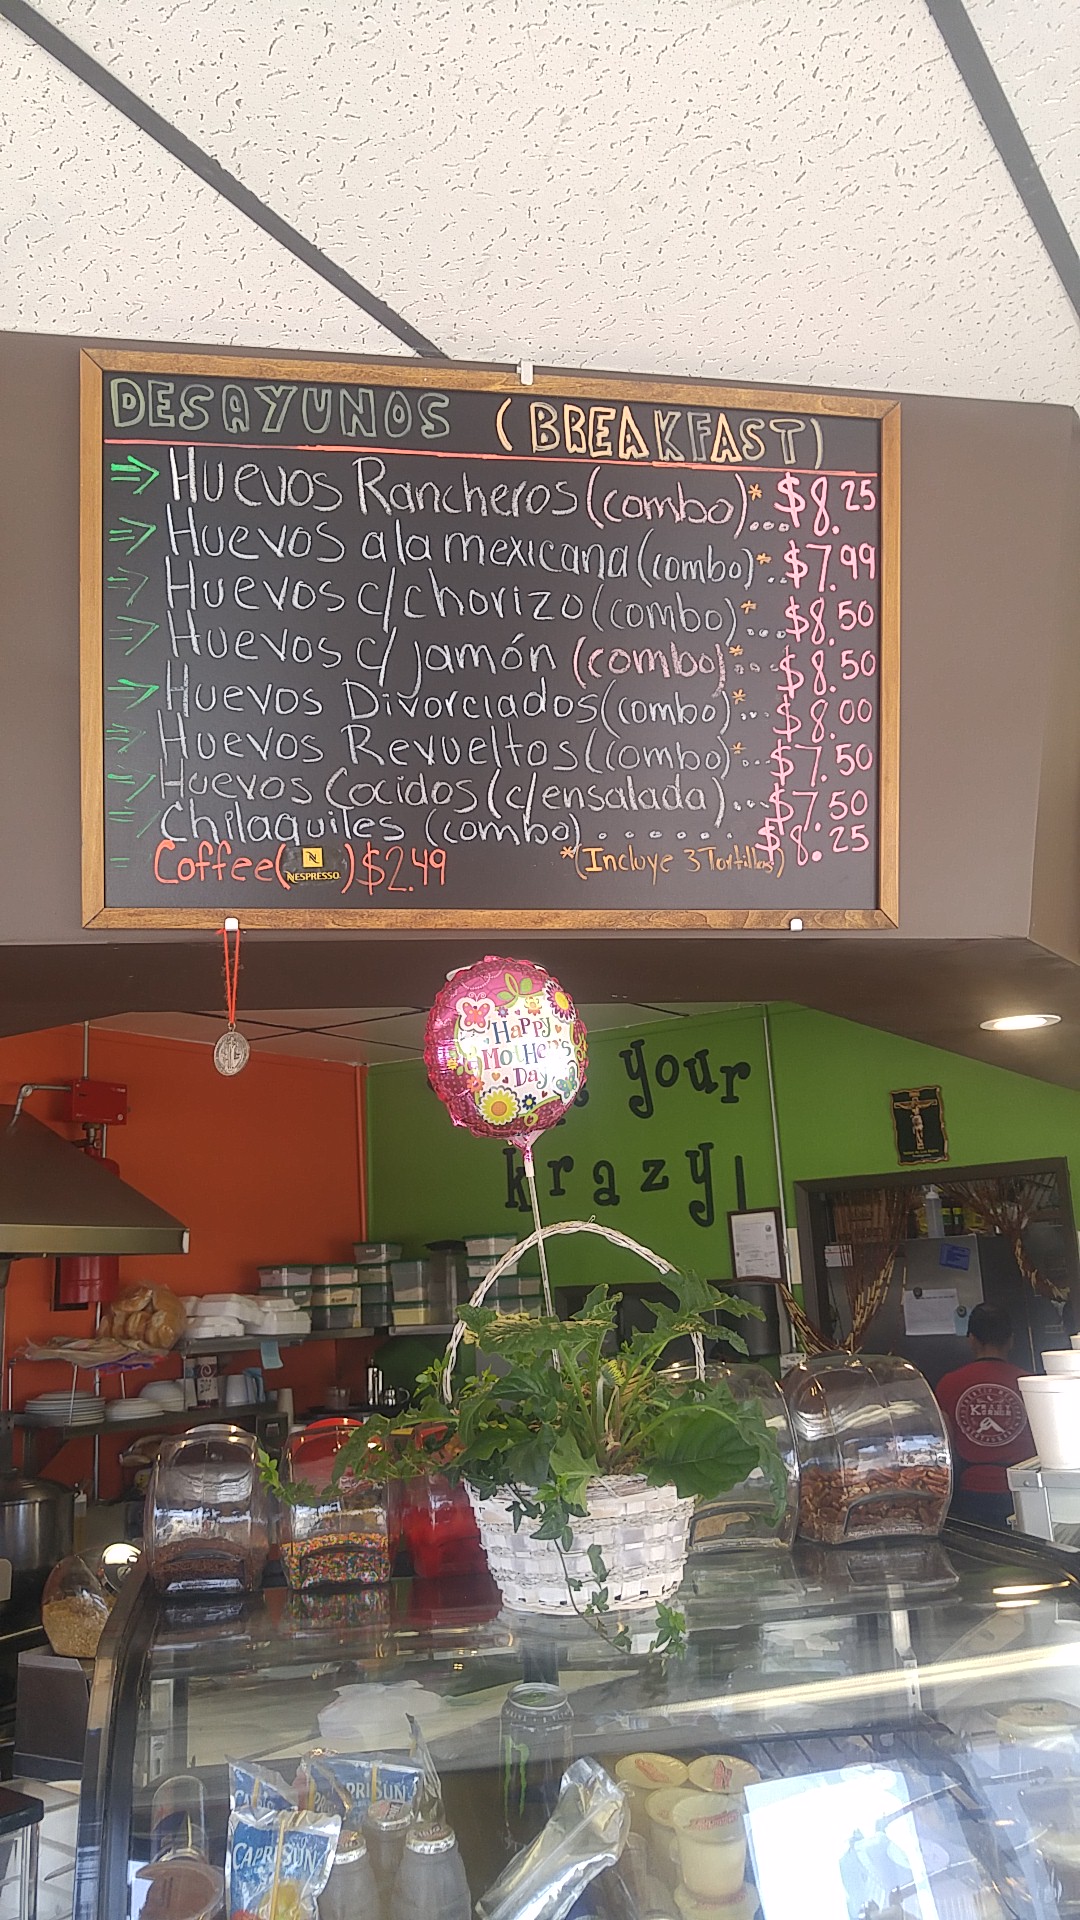 DESAYUNOS (BREAKFAST)
⇒ Huevos Rancheros (combo)*...$8.25
⇒ Huevos a la mexicana (combo)*..$7.99
⇒ Huevos c/chorizo (combo)*...$8.50
⇒ Huevos c/ jamón (combo)*...$8.50
⇒ Huevos Divorciados (combo)*...$8.00
⇒ Huevos Revueltos (combo)*...$7.50
⇒ Huevos Cocidos (c/ensalada)...$7.50
⇒ Chilaquiles (combo).......$8.25
= Coffee (NESPRESSO.) $2.49 *(Incluye 3 Tortillas)
Happy
Mother's
Day
your
krazy!
CAPRISUN
CAPRISUN